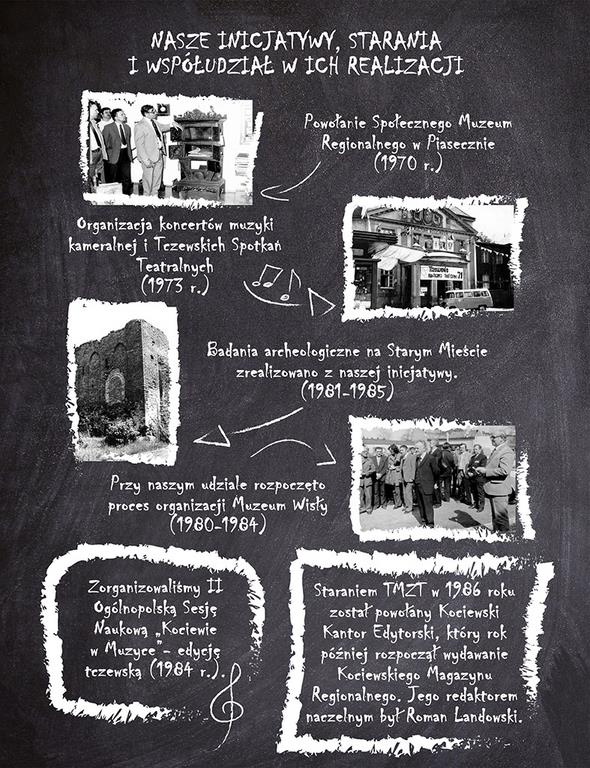 NASZE INICJATYWY, STARANIA
I WSPÓŁUDZIAŁ W ICH REALIZACJI
Powołanie Społecznego Muzeum
Regionalnego w Piasecznie
(1970 r.)
Organizacja koncertów muzyki
kameralnej i Tczewskich Spotkań
Teatralnych
(1973 r.)
Badania archeologiczne na Starym Mieście
zrealizowano z naszej inicjatywy.
(1981-1985)
Przy naszym udziale rozpoczęto
proces organizacji Muzeum Wisły
(1980-1984)
Zorganizowaliśmy II
Ogólnopolską Sesję
Naukową „Kociewie
w Muzyce”- edycję
tczewską (1984 r.).
Staraniem TMZT w 1986 roku
został powołany Kociewski
Kantor Edytorski, który rok
później rozpoczął wydawanie
Kociewskiego Magazynu
Regionalnego. Jego redaktorem
naczelnym był Roman Landowski.